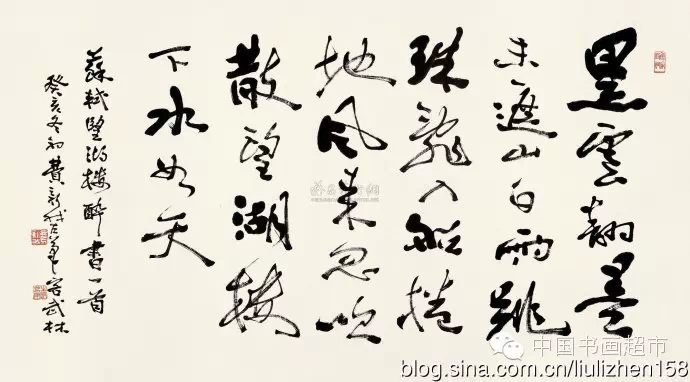 黑雲翻墨
未遮山白雨跳
珠亂入船捲
地風來忽吹
散望湖樓
下水如天
蘇軾望湖樓醉書一首
癸亥冬初費新我左筆客武林
中国书画超市
blog.sina.com.cn/liulizhen158